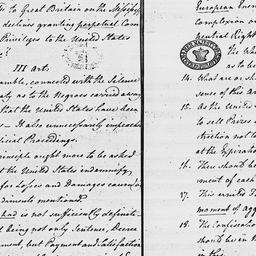 to Great Britain on the Missisip
declines granting perpetual Com
Privileges to the United States
III Art.
amble, connected with the Silence
aty as to the Negroes carried away
that the United States have been
s – It also unnecessarily impeaches
dicial Proceedings.
rinciple ought more to be asked
at the United States indemnify,
for Losses and Damages caused/o
ediments mentioned.
Land is not sufficiently definite.
being not only Sentence, Decree
ment, but Payment and Satisfaction
European Enem
Complexion o
nential Right
The Wha
as to be
14. What are or sha
sense of this Ar
15. As the United S
to sell Prizes
striction not to
at the Expiratio
16. There should be
ment of each
17. This enables
moment of agg
18. The Confiscation
should be in th
in this